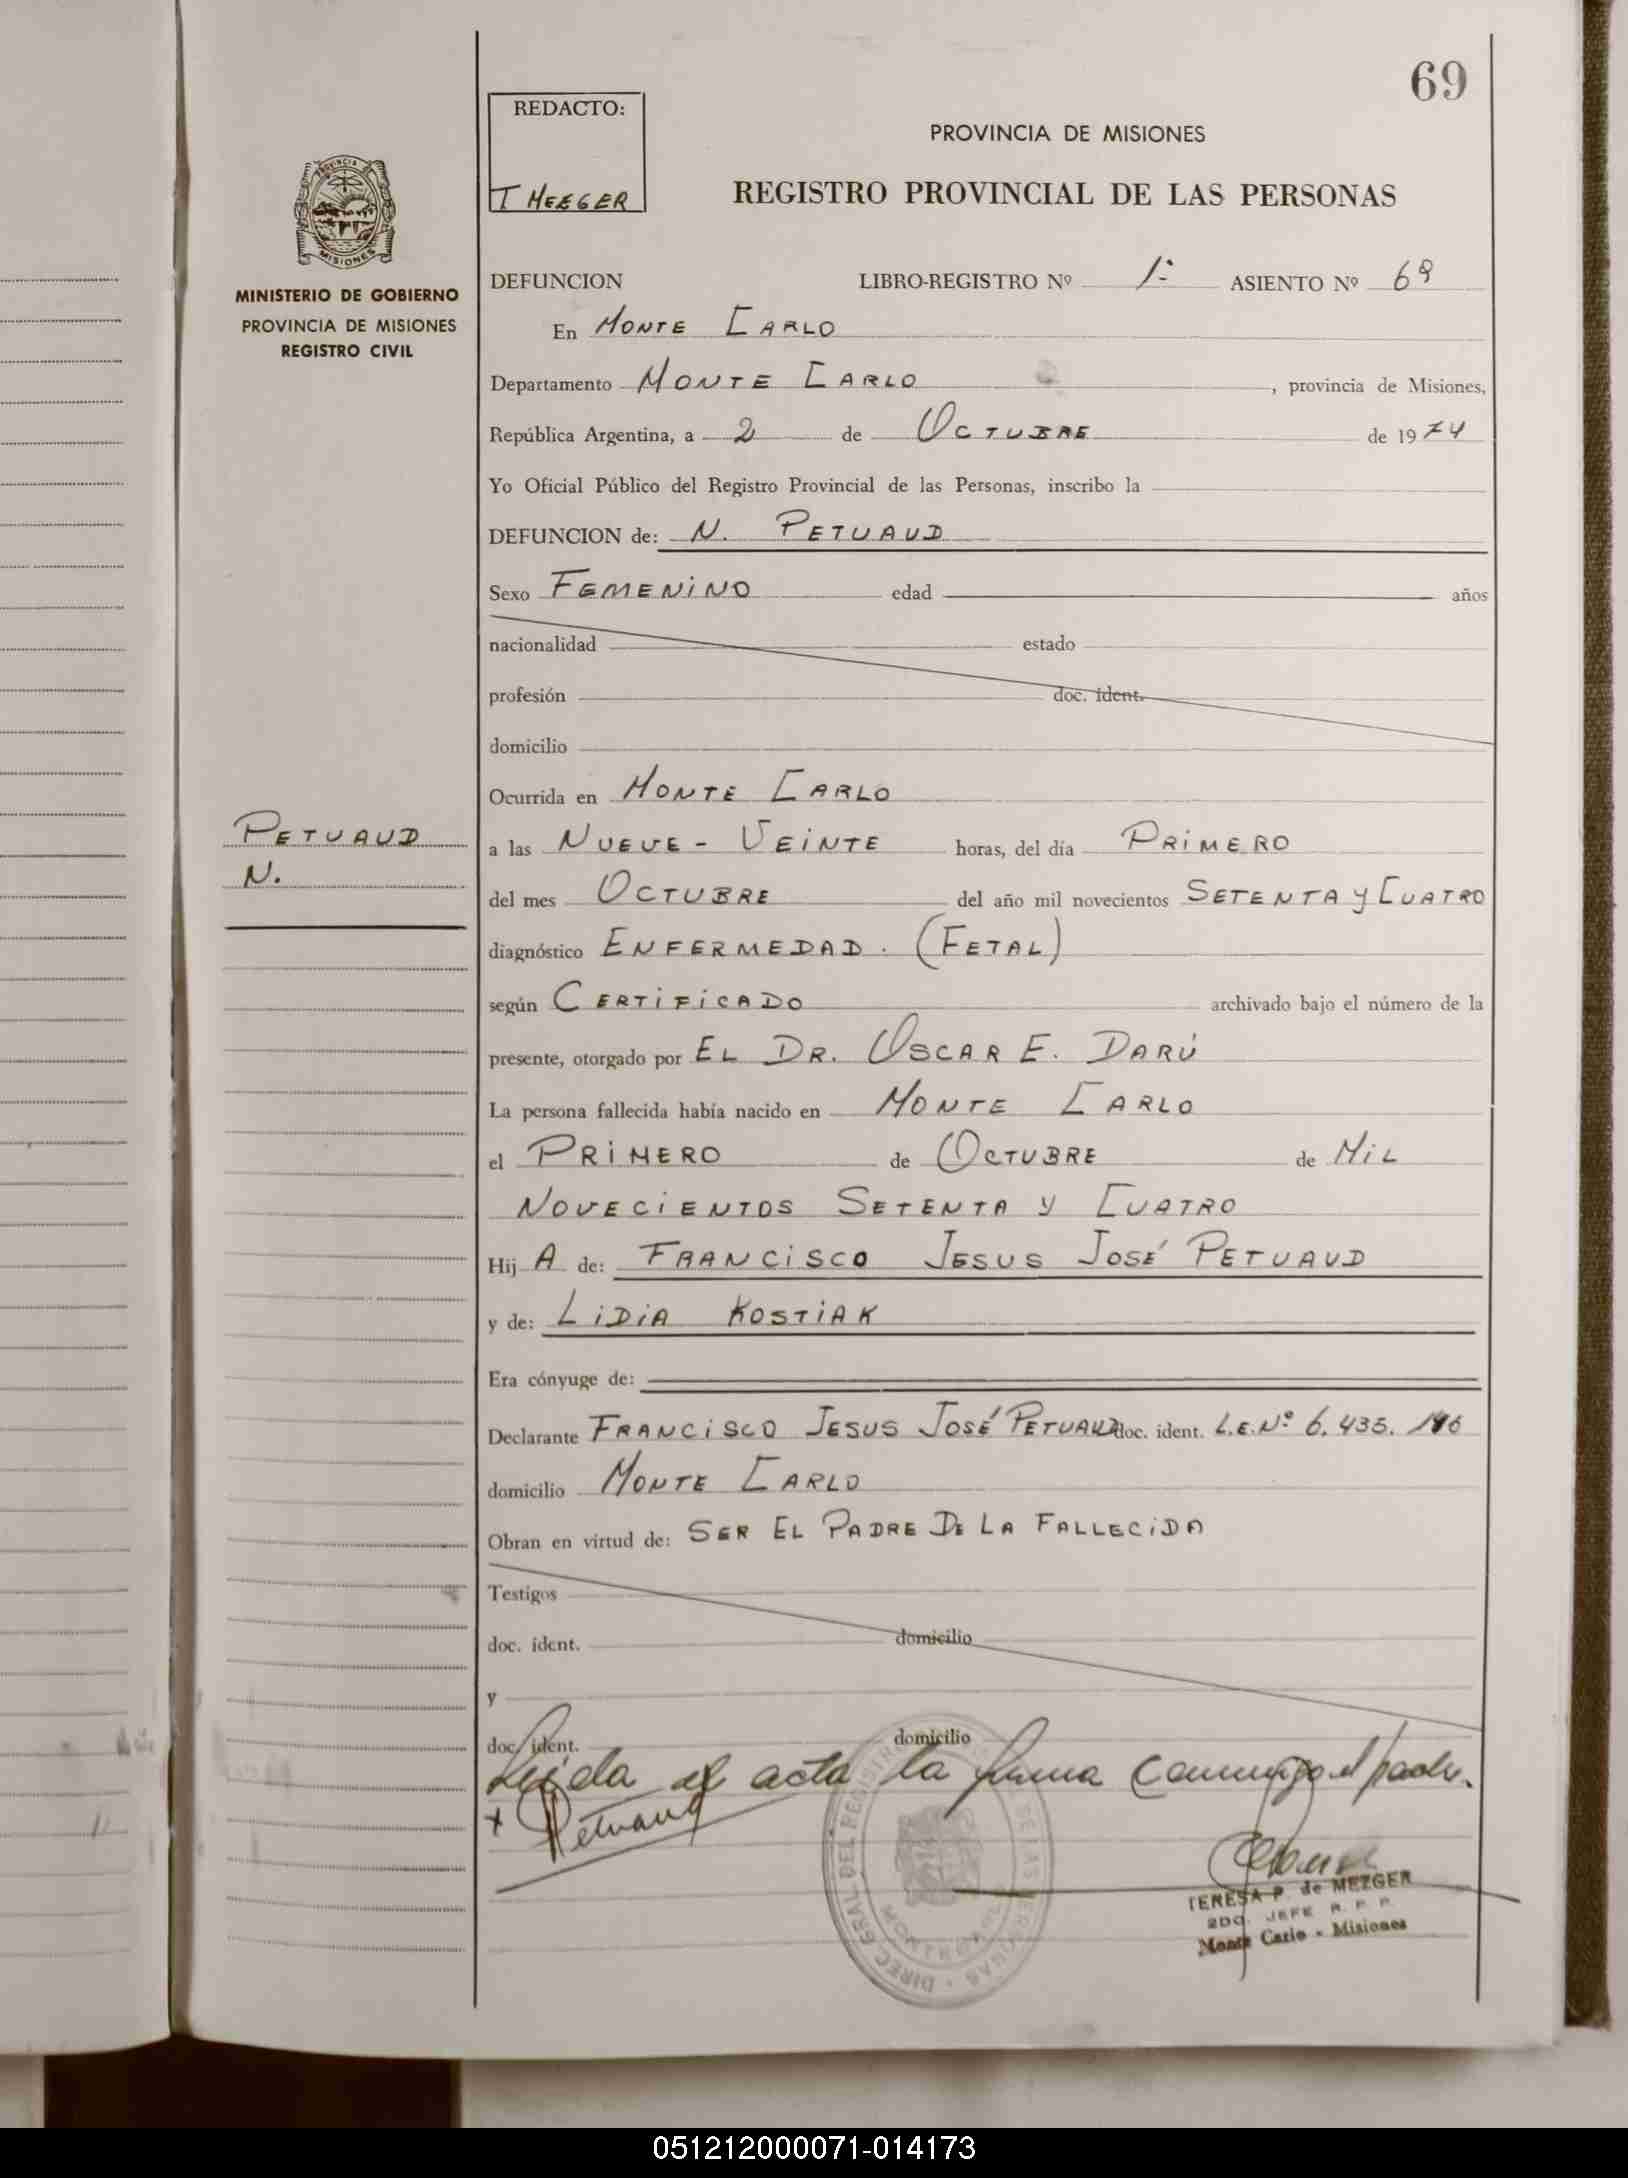 69
REDACTO:
T HEEGER
PROVINCIA DE MISIONES
REGISTRO PROVINCIAL DE LAS PERSONAS
MINISTERIO DE GOBIERNO
PROVINCIA DE MISIONES
REGISTRO CIVIL
DEFUNCION LIBRO-REGISTRO Nº 1º ASIENTO Nº 69
En MONTE CARLO
Departamento MONTE CARLO, provincia de Misiones,
República Argentina, a 2 de OCTUBRE de 1974
Yo Oficial Público del Registro Provincial de las Personas, inscribo la
DEFUNCION de: N. PETUAUD
Sexo FEMENINO edad años
nacionalidad estado
profesión doc. ident.
domicilio
Ocurrida en MONTE CARLO
PETUAUD
N.
a las NUEVE - VEINTE horas, del día PRIMERO
del mes OCTUBRE del año mil novecientos SETENTA Y CUATRO
diagnóstico ENFERMEDAD. (FETAL)
según CERTIFICADO archivado bajo el número de la
presente, otorgado por EL DR. OSCAR E. DARÚ
La persona fallecida había nacido en MONTE CARLO
el PRIMERO de OCTUBRE de MIL
NOVECIENTOS SETENTA Y CUATRO
Hij A de: FRANCISCO JESUS JOSÉ PETUAUD
y de: LIDIA KOSTIAK
Era cónyuge de:
Declarante FRANCISCO JESUS JOSÉ PETUAUD doc. ident. L.E.Nº 6.435.
domicilio MONTE CARLO
Obran en virtud de: SER EL PADRE DE LA FALLECIDA
Testigos
doc. ident. domicilio
y
doc. ident. domicilio
Leida el acta la firma conmigo el padre.
+ Petuaud
TERESA P. de MEZGER
2DO. JEFE R. P. P.
Monte Carlo - Misiones
051212000071-014173